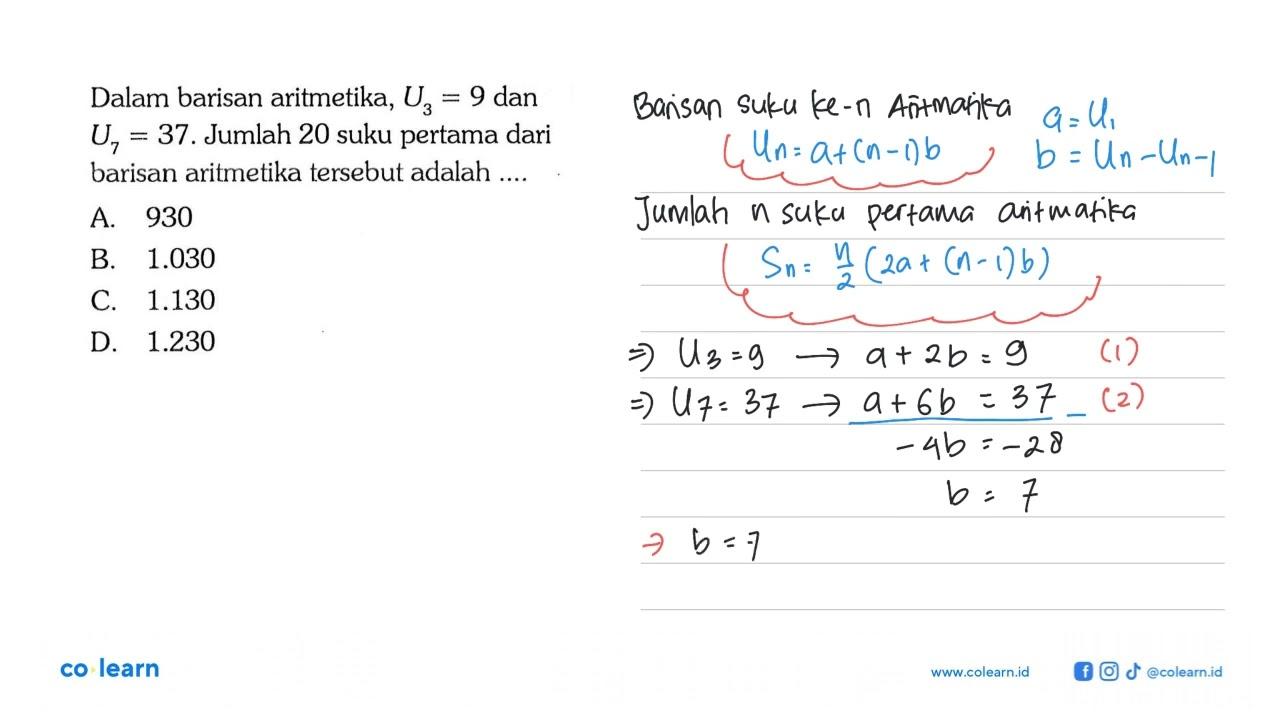 Dalam barisan aritmetika, U₃ = 9 dan
U₇ = 37. Jumlah 20 suku pertama dari
barisan aritmetika tersebut adalah ....
A. 930
B. 1.030
C. 1.130
D. 1.230
Barisan suku ke-n Aritmatika
Un = a+(n-1)b
a = U₁
b = Un - Un-1
Jumlah n suku pertama aritmatika
Sn = n/2 (2a + (n-1)b)
=> U3 = 9 → a + 2b = 9 (1)
=> U7 = 37 → a + 6b = 37 – (2)
-4b = -28
b = 7
→ b = 7
co learn
www.colearn.id
@colearn.id